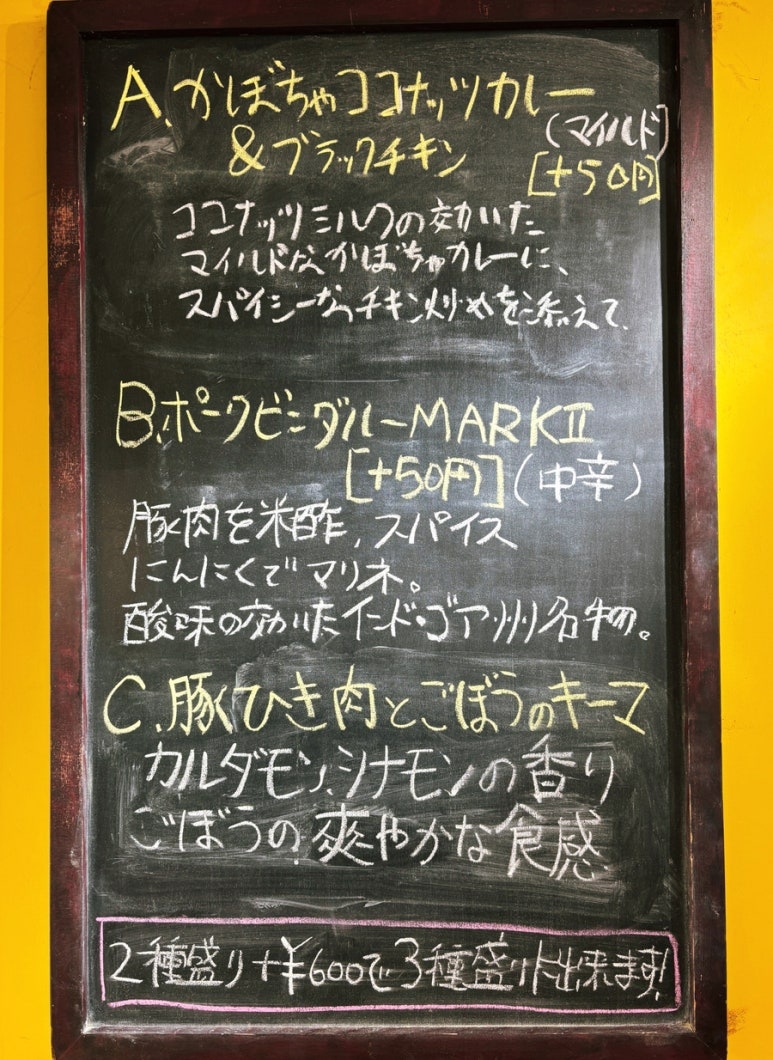 A.かぼちゃココナッツカレー
&ブラックチキン
(マイルド)
[+50円]
ココナッツミルクの効いた
マイルドな、かぼちゃカレーに、
スパイシーなチキン炒めを添えて、
B.ポークビンダルーMARKⅡ
[+50円](中辛)
豚肉を米酢,スパイス
にんにくでマリネ。
酸味の効いたインド・ゴア州名物。
C.豚ひき肉とごぼうのキーマ
カルダモン、シナモンの香り
ごぼうの爽やかな食感
2種盛り+¥600で3種盛りに出来ます!